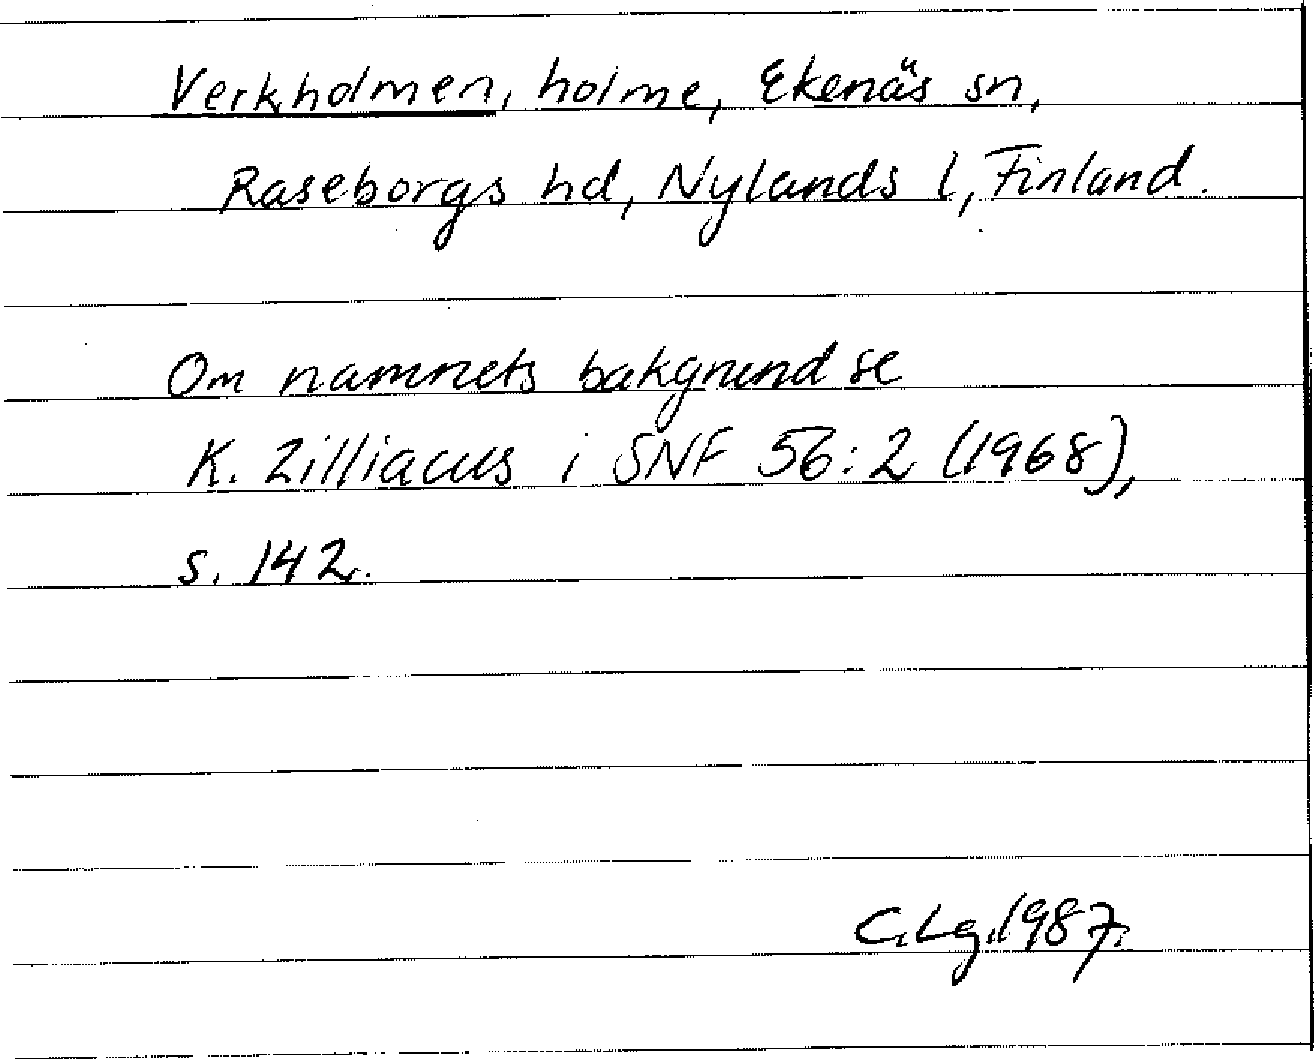 Verkholmen, holme, Ekenäs sn,
Raseborgs hd, Nylands l, Finland.
Om namnets bakgrund se
K. Zilliacus i SNF 56:2 (1968),
s. 142.
C.Lg.1987.